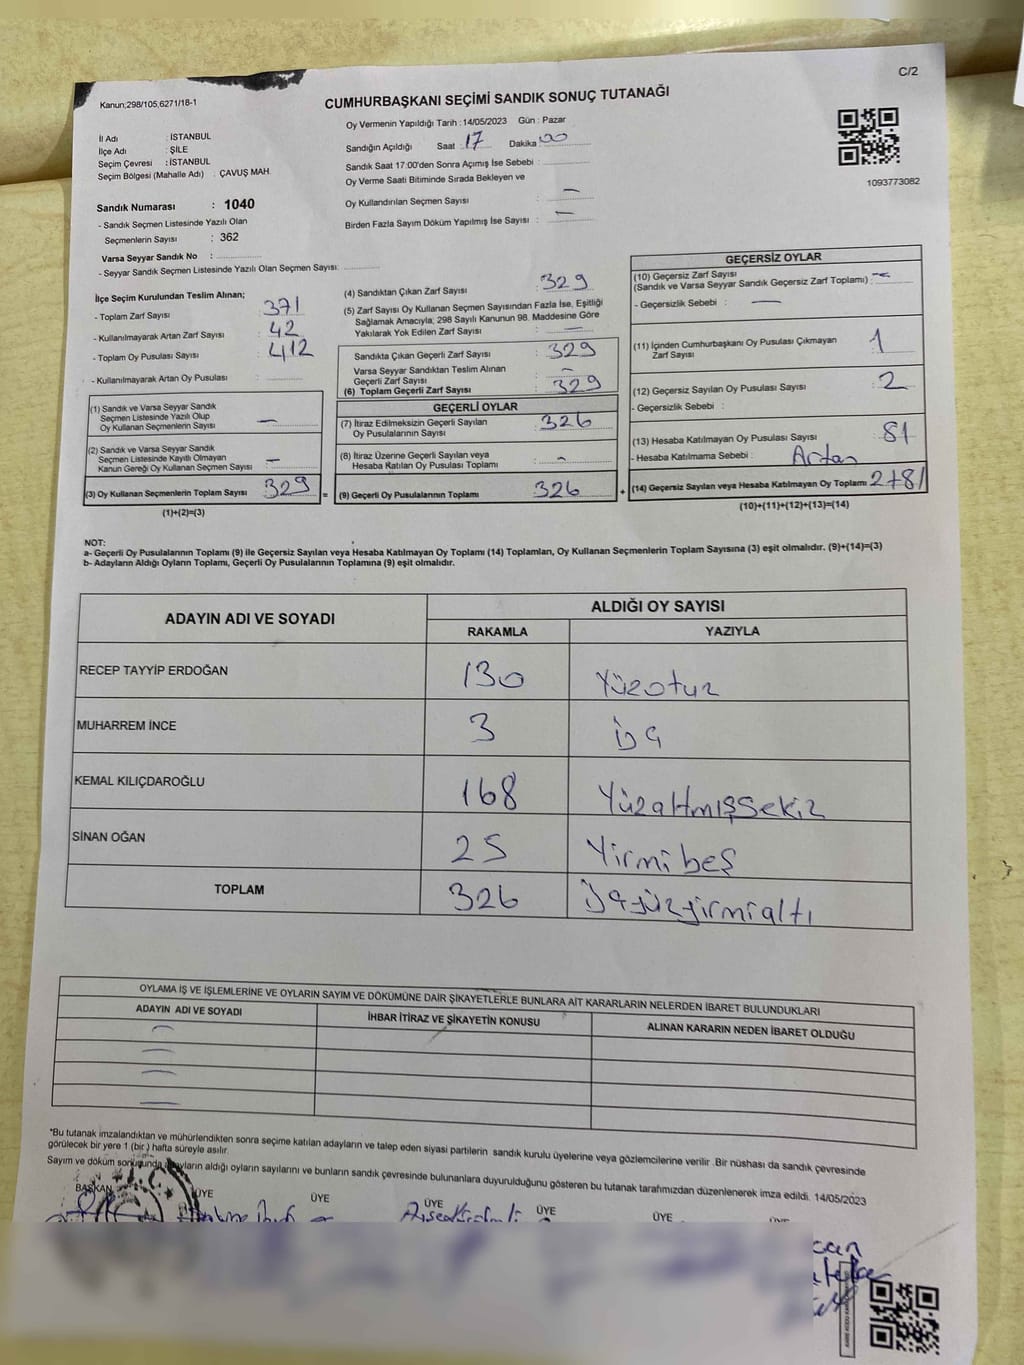 C/2
Kanun;298/105,6271/18-1
CUMHURBAŞKANI SEÇİMİ SANDIK SONUÇ TUTANAĞI
İl Adı : İSTANBUL
İlçe Adı : ŞİLE
Seçim Çevresi : İSTANBUL
Seçim Bölgesi (Mahalle Adı) : ÇAVUŞ MAH.
Sandık Numarası : 1040
- Sandık Seçmen Listesinde Yazılı Olan
Seçmenlerin Sayısı : 362
Varsa Seyyar Sandık No :
- Seyyar Sandık Seçmen Listesinde Yazılı Olan Seçmen Sayısı:
Oy Vermenin Yapıldığı Tarih : 14/05/2023 Gün : Pazar
Sandığın Açıldığı Saat : 17 Dakika : 00
Sandık Saat 17:00'den Sonra Açımış İse Sebebi :
Oy Verme Saati Bitiminde Sırada Bekleyen ve
Oy Kullandırılan Seçmen Sayısı : —
Birden Fazla Sayım Döküm Yapılmış İse Sayısı : —
1093773082
İlçe Seçim Kurulundan Teslim Alınan;
- Toplam Zarf Sayısı : 371
- Kullanılmayarak Artan Zarf Sayısı : 42
- Toplam Oy Pusulası Sayısı : 412
- Kullanılmayarak Artan Oy Pusulası :
(1) Sandık ve Varsa Seyyar Sandık
Seçmen Listesinde Yazılı Olup
Oy Kullanan Seçmenlerin Sayısı : —
(2) Sandık ve Varsa Seyyar Sandık
Seçmen Listesinde Kayıtlı Olmayan
Kanun Gereği Oy Kullanan Seçmen Sayısı : —
(3) Oy Kullanan Seçmenlerin Toplam Sayısı : 329
(1)+(2)=(3)
(4) Sandıktan Çıkan Zarf Sayısı : 329
(5) Zarf Sayısı Oy Kullanan Seçmen Sayısından Fazla İse, Eşitliği
Sağlamak Amacıyla; 298 Sayılı Kanunun 98. Maddesine Göre
Yakılarak Yok Edilen Zarf Sayısı : —
Sandıkta Çıkan Geçerli Zarf Sayısı : 329
Varsa Seyyar Sandıktan Teslim Alınan
Geçerli Zarf Sayısı : —
(6) Toplam Geçerli Zarf Sayısı : 329
GEÇERLİ OYLAR
(7) İtiraz Edilmeksizin Geçerli Sayılan
Oy Pusulalarının Sayısı : 326
(8) İtiraz Üzerine Geçerli Sayılan veya
Hesaba Katılan Oy Pusulası Toplamı : -
= (9) Geçerli Oy Pusulalarının Toplamı : 326 +
GEÇERSİZ OYLAR
(10) Geçersiz Zarf Sayısı
(Sandık ve Varsa Seyyar Sandık Geçersiz Zarf Toplamı) : —
- Geçersizlik Sebebi : —
(11) İçinden Cumhurbaşkanı Oy Pusulası Çıkmayan
Zarf Sayısı : 1
(12) Geçersiz Sayılan Oy Pusulası Sayısı : 2
- Geçersizlik Sebebi :
(13) Hesaba Katılmayan Oy Pusulası Sayısı : 81
- Hesaba Katılmama Sebebi : Artan
(14) Geçersiz Sayılan veya Hesaba Katılmayan Oy Toplamı : 2+81
(10)+(11)+(12)+(13)=(14)
NOT:
a- Geçerli Oy Pusulalarının Toplamı (9) ile Geçersiz Sayılan veya Hesaba Katılmayan Oy Toplamı (14) Toplamları, Oy Kullanan Seçmenlerin Toplam Sayısına (3) eşit olmalıdır. (9)+(14)=(3)
b- Adayların Aldığı Oyların Toplamı, Geçerli Oy Pusulalarının Toplamına (9) eşit olmalıdır.
ADAYIN ADI VE SOYADI ALDIĞI OY SAYISI
RAKAMLA YAZIYLA
RECEP TAYYİP ERDOĞAN 130 Yüzotuz
MUHARREM İNCE 3 üç
KEMAL KILIÇDAROĞLU 168 Yüzaltmışsekiz
SİNAN OĞAN 25 Yirmibeş
TOPLAM 326 Üçyüzyirmialtı
OYLAMA İŞ VE İŞLEMLERİNE VE OYLARIN SAYIM VE DÖKÜMÜNE DAİR ŞİKAYETLERLE BUNLARA AİT KARARLARIN NELERDEN İBARET BULUNDUKLARI
ADAYIN ADI VE SOYADI İHBAR İTİRAZ VE ŞİKAYETİN KONUSU ALINAN KARARIN NEDEN İBARET OLDUĞU
—
—
—
—
*Bu tutanak imzalandıktan ve mühürlendikten sonra seçime katılan adayların ve talep eden siyasi partilerin sandık kurulu üyelerine veya gözlemcilerine verilir .Bir nüshası da sandık çevresinde
görülecek bir yere 1 (bir ) hafta süreyle asılır.
Sayım ve döküm sonucunda adayların aldığı oyların sayılarını ve bunların sandık çevresinde bulunanlara duyurulduğunu gösteren bu tutanak tarafımızdan düzenlenerek imza edildi. 14/05/2023
BAŞKAN ÜYE ÜYE ÜYE ÜYE ÜYE